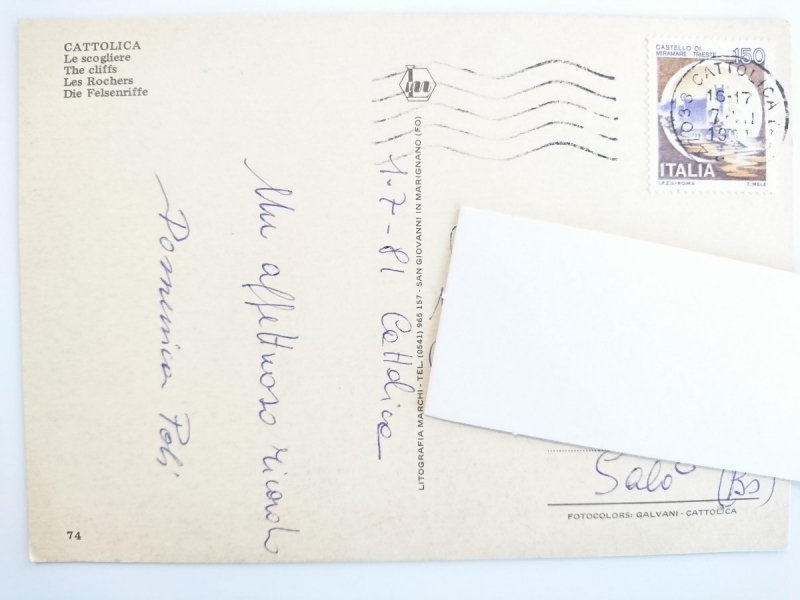 CATTOLICA
Le scogliere
The cliffs
Les Rochers
Die Felsenriffe
CASTELLO DI
MIRAMARE - TRIESTE
150
CATTOLICA
16-17
ITALIA
I.P.Z.S. - ROMA
T. MELE
1-7-81 Cattolica
Un affettuoso ricordo
Domenica Poli
LITOGRAFIA MARCHI - TEL. (0541) 965 157 - SAN GIOVANNI IN MARIGNANO (FO)
Salò (Bs)
FOTOCOLORS: GALVANI - CATTOLICA
74